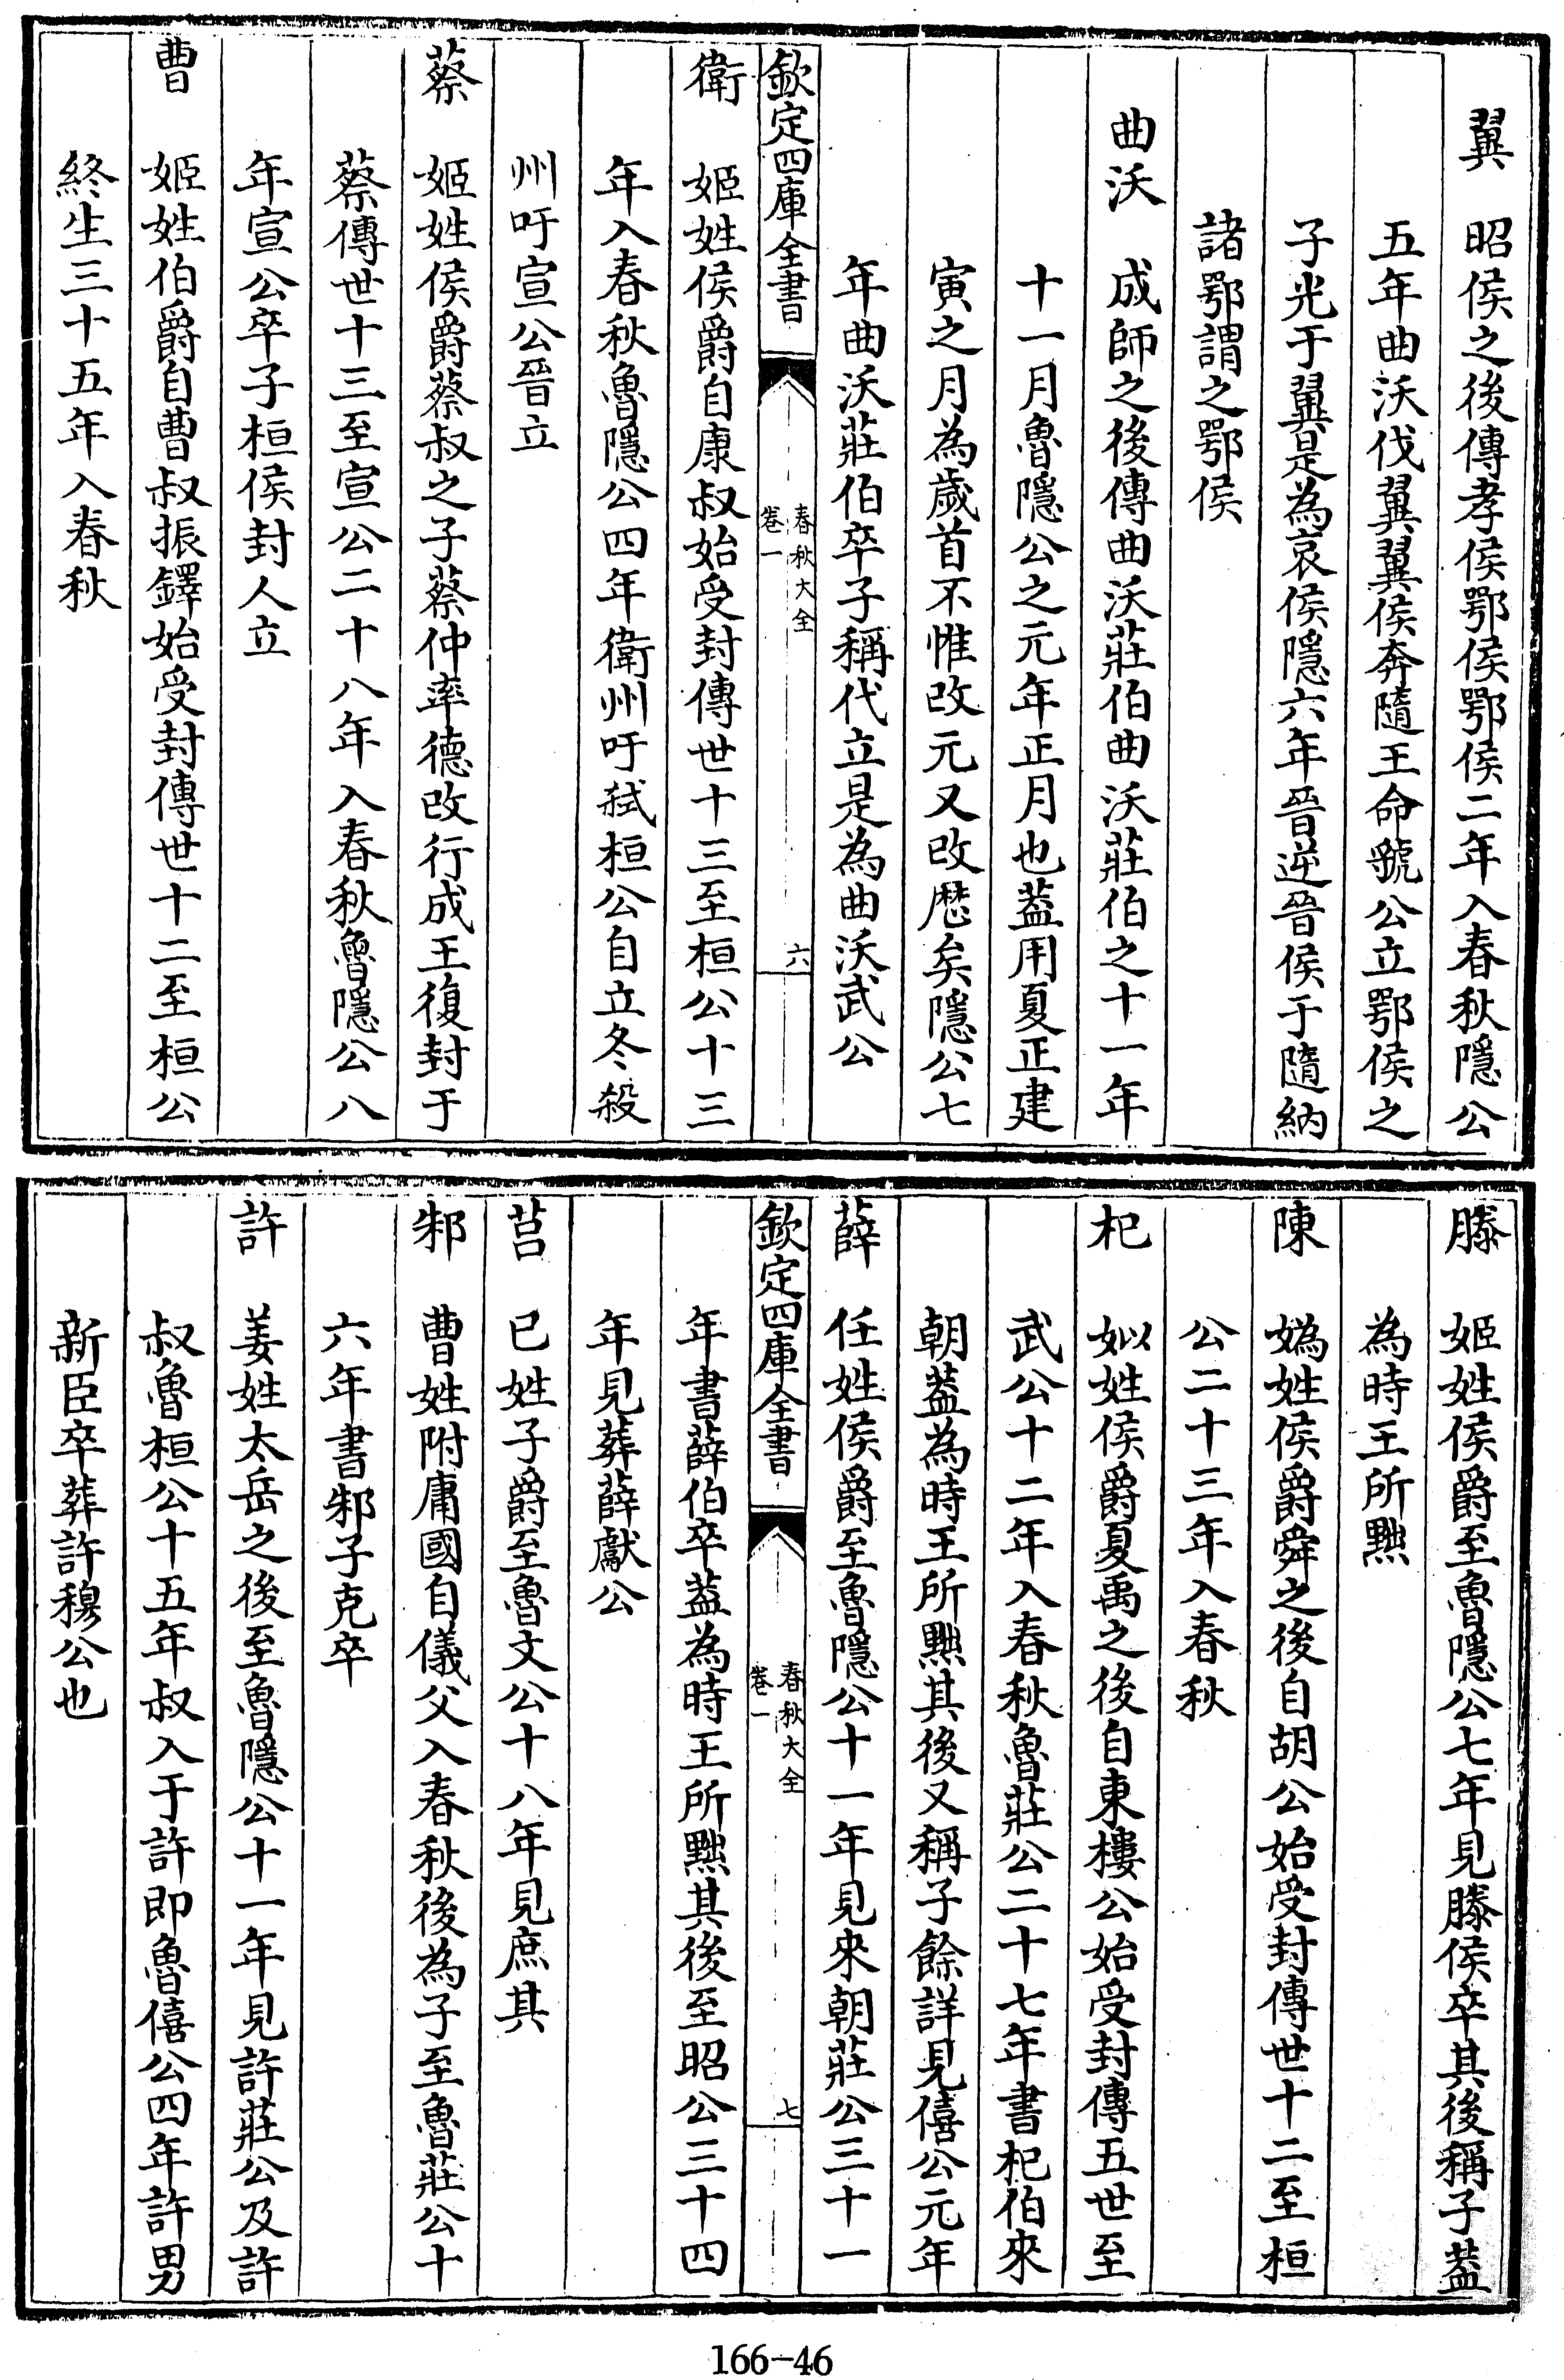 翼　昭侯之後傳孝侯鄂侯鄂侯二年入春秋隱公
五年曲沃伐翼翼侯奔隨王命虢公立鄂侯之
子光于翼是為哀侯隱六年晉逆晉侯于隨納
諸鄂謂之鄂侯
曲沃　成師之後傳曲沃莊伯曲沃莊伯之十一年
十一月魯隱公之元年正月也葢用夏正建
寅之月為歲首不惟改元又改歴矣隱公七
年曲沃莊伯卒子稱代立是為曲沃武公
欽定四庫全書
春秋大全
卷一
六
衛　姬姓侯爵自康叔始受封傳世十三至桓公十三
年入春秋魯隱公四年衛州吁弑桓公自立冬殺
州吁宣公晉立
蔡　姬姓侯爵蔡叔之子蔡仲率德改行成王復封于
蔡傳世十三至宣公二十八年入春秋魯隱公八
年宣公卒子桓侯封人立
曹　姬姓伯爵自曹叔振鐸始受封傳世十二至桓公
終生三十五年入春秋
滕　姬姓侯爵至魯隱公七年見滕侯卒其後稱子葢
為時王所黜
陳　媯姓侯爵舜之後自胡公始受封傳世十二至桓
公二十三年入春秋
杞　姒姓侯爵夏禹之後自東樓公始受封傳五世至
武公十二年入春秋魯莊公二十七年書杞伯來
朝葢為時王所黜其後又稱子餘詳見僖公元年
薛　任姓侯爵至魯隱公十一年見來朝莊公三十一
欽定四庫全書
春秋大全
卷一
七
年書薛伯卒葢為時王所黜其後至昭公三十四
年見葬薛獻公
莒　已姓子爵至魯文公十八年見庶其
邾　曹姓附庸國自儀父入春秋後為子至魯莊公十
六年書邾子克卒
許　姜姓太岳之後至魯隱公十一年見許莊公及許
叔魯桓公十五年叔入于許即魯僖公四年許男
新臣卒葬許穆公也
166-46